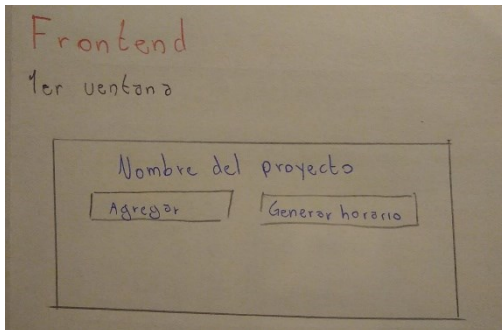 Frontend
1er ventana
Nombre del proyecto
Agregar Generar horario